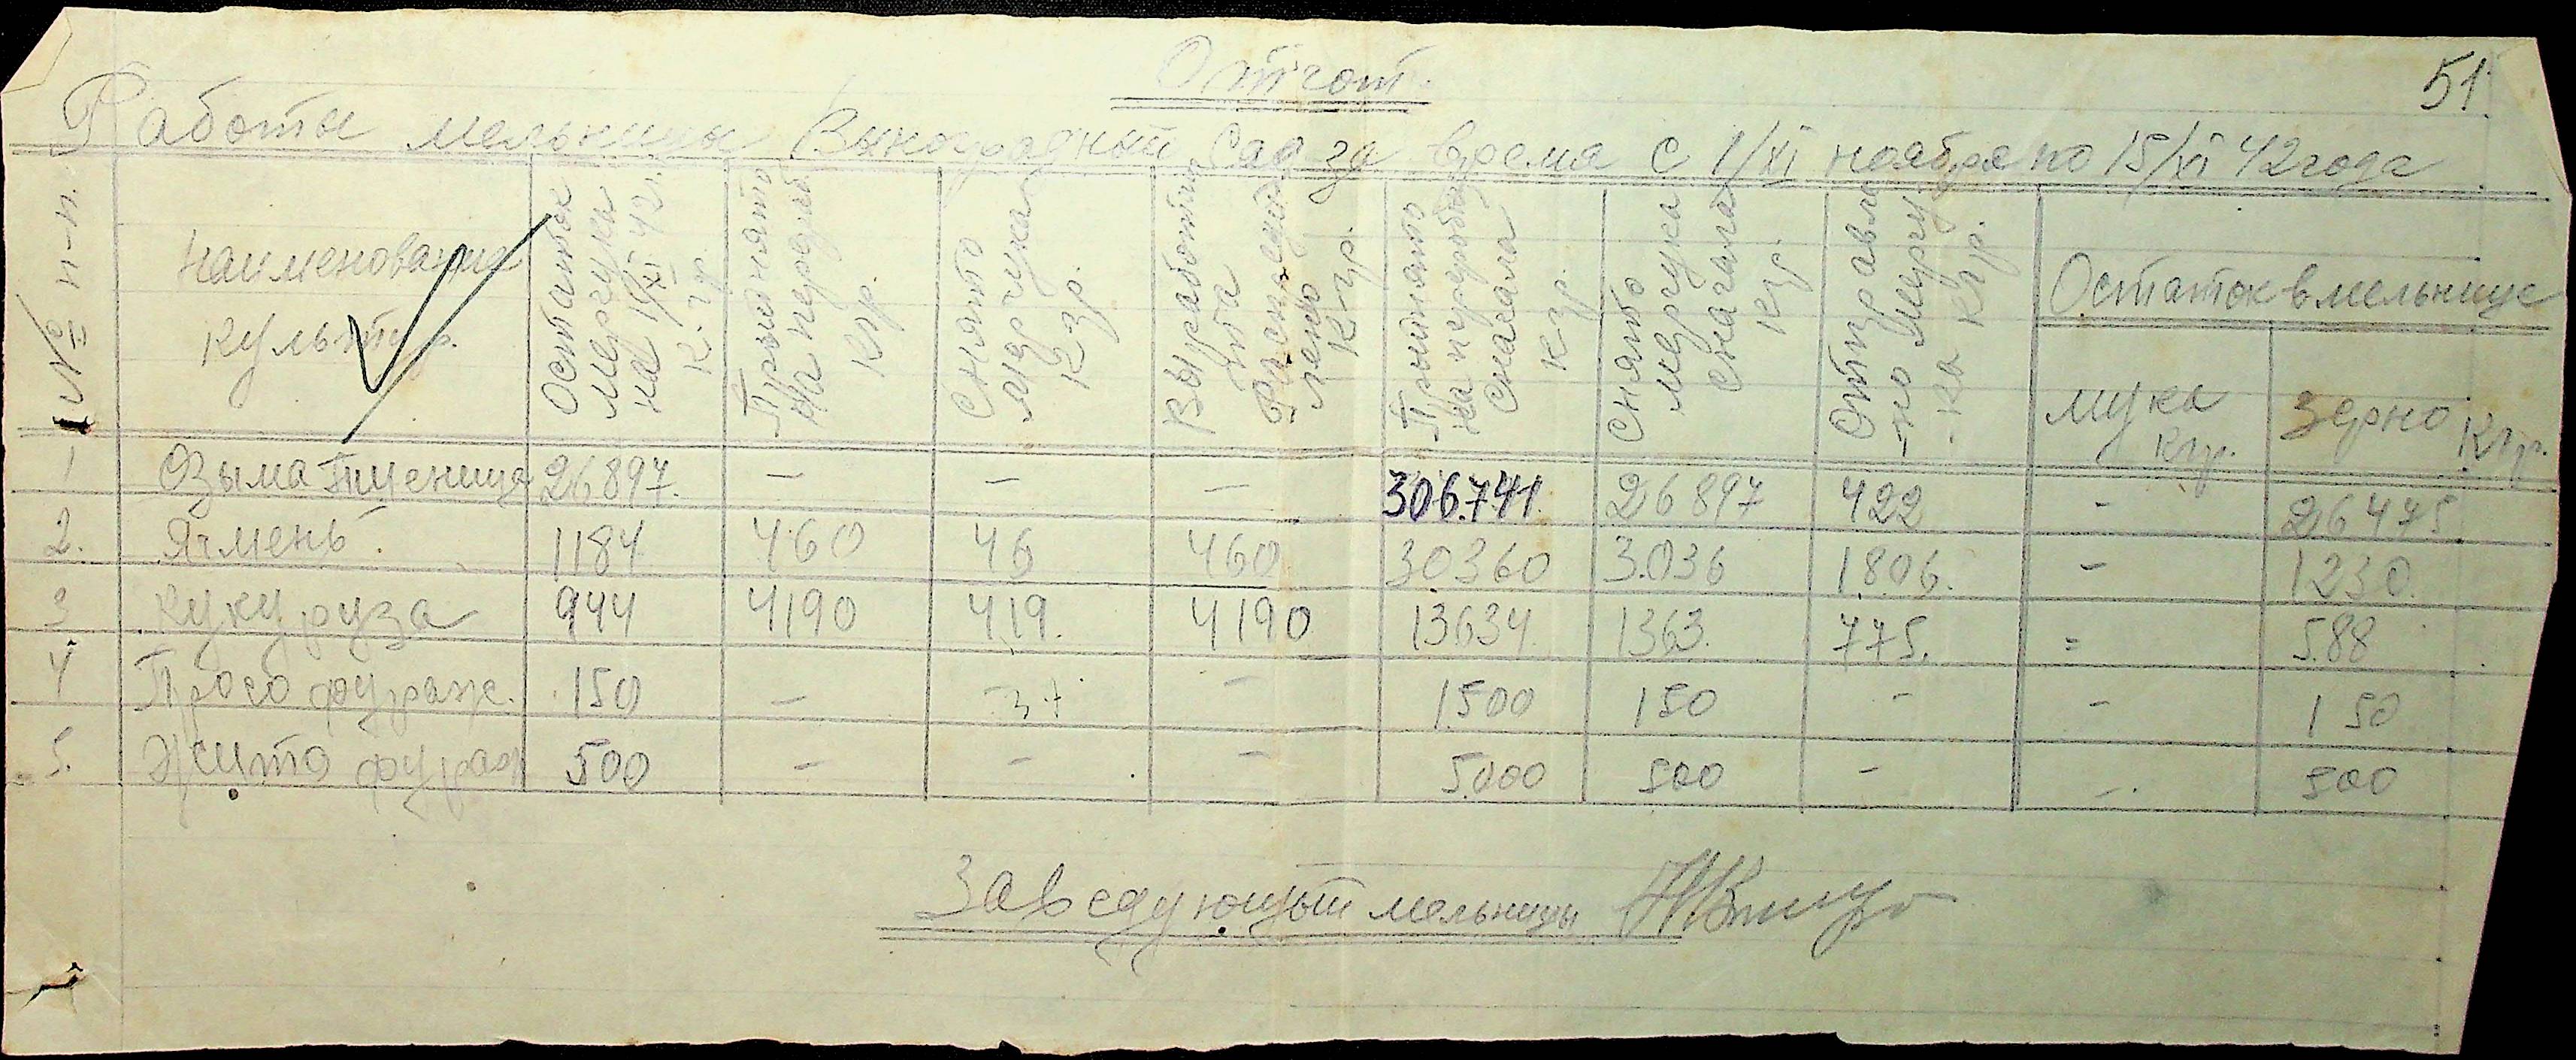 51
Отчот.
Работы мельницы Выноградный Сад за время с 1/XI ноября по 15/XI 42 года
№ п-п.
Наименования культур.
Остаток мерчука на 1/XI 42 г. к.гр.
Прыинято на перераб. кгр.
Снято мерчука кгр.
Выработта кгр.
Прыинято на переработку сначала кгр.
Снято мерчука сначала кгр.
Отправле-но мерчу-ка кгр.
Остаток в мельнице
мука кгр.
зерно кгр.
1 Озыма Пшеница 26897. — — — 306.741 26897 422 - 26475
2. Ячмень. 1184 460 46 460 30360 3.036 1806. - 1230.
3 кукуруза 944 4190 419. 4190 13634 1363. 775. = 588
4 Просо фураж. 150 — - — 1500 150 - - 150
5. Жито фураж 500 — — — 5000 500 - - 500
Заведующый мельницы